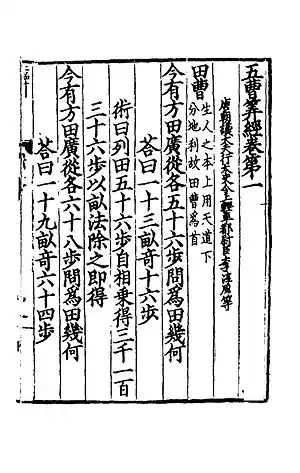 五曹算經卷第一
唐朝議大夫行太史令上輕車都尉臣李淳風等
田曹
生人之本上用天道下
分地利故田曹爲首
今有方田廣從各五十六歩問爲田幾何
荅曰一十三畝奇十六歩
術曰列田五十六歩自相乗得三千一百
三十六歩以畝法除之即得
今有方田廣從各六十八歩問爲田幾何
荅曰一十九畝奇六十四歩